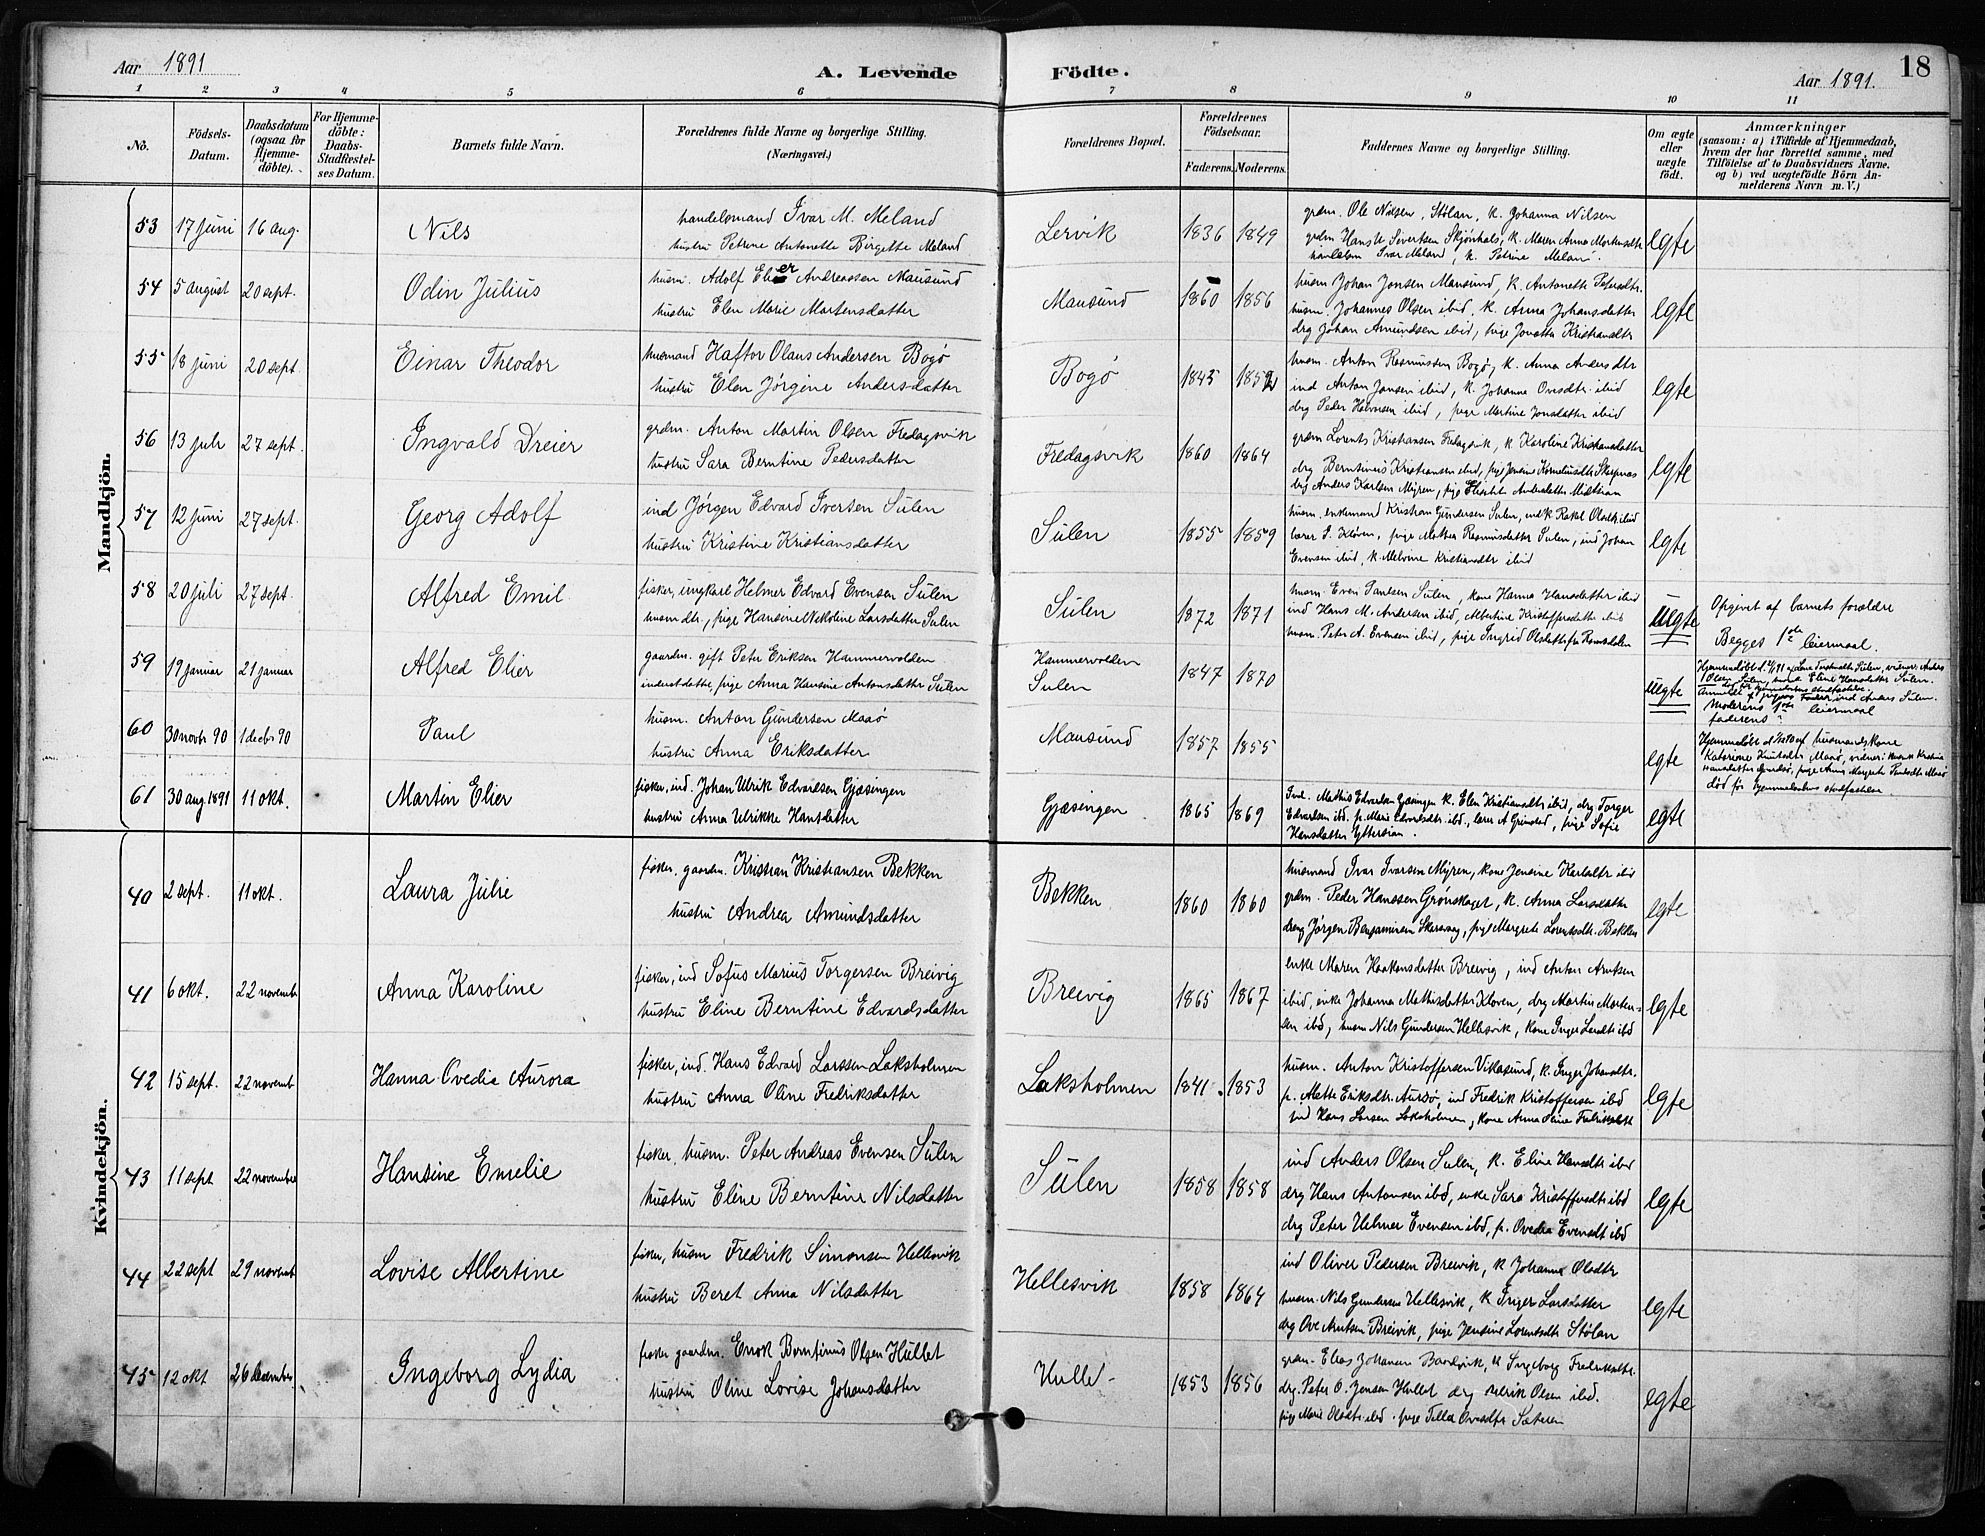 Aar 1891
A. Levende Födte.
Aar 1891.
18
1 2 3 4 5 6 7 8 9 10 11
No.
Födsels-Datum.
Daabsdatum (ogsaa for Hjemme-döbte).
For Hjemme-döbte: Daabs-Stadfæstel-ses Datum.
Barnets fulde Navn.
Forældrenes fulde Navne og borgerlige Stilling.
(Næringsvei.)
Forældrenes Bopæl.
Forældrenes Födselsaar.
Faderens. Moderens.
Faddernes Navne og borgerlige Stilling.
Om ægte eller uægte födt.
Anmærkninger
(saasom: a) i Tilfælde af Hjemmedaab,
hvem der har forrettet samme, med
Tilföielse af to Daabsvidners Navne,
og b) ved uægtefödte Börn An-
melderens Navn m. V.)
Mandkjön.
53 17 juni 16 aug. Nils
handelsmand Ivar M. Meland
hustru Petrine Antonette Birgette Meland
Lervik 1836 1849
grdm. Ole Nilsen, Stølan, k. Johanna Nilsen
grdm Hans U Sivertsen Skjønhals, k. Maren Anna Mortensdtr
handelsm Ivar Meland, k. Petrine Meland.
egte
54 5 august 20 sept. Odin Julius
husm. Adolf Elier Andreassen Mausund
hustru Elen Marie Martensdatter
Mausund 1860 1856
husm Johan Jonsen Mausund, k. Antonette Petersdtr.
husm. Johannes Olsen ibid, k. Anna Johansdatter
drg Johan Amundsen ibid, pige Jonette Kristiansdtr
egte
55 18 juni 20 sept. Einar Theodor
husmand Haftor Olaus Andersen Bogø
hustru Elen Jørgine Andersdatter
Bogø 1845 1852
husm. Anton Rasmussen Bogø, k. Anna Andersdtr
ind Anton Jansen ibid, k. Johanna Ovesdtr. ibid
drg Peder Halvorsen ibid, pige Martine Jonsdatter ibid
egte
56 13 juli 27 sept. Ingvald Dreier
grdm. Anton Martin Olsen Fredagsvik
hustru Sara Berntine Pedersdatter
Fredagsvik 1860 1864
grdm Lorents Kristiansen Fredagsvik, k Karoline Kristiansdatter
drg Berntinius Kristiansen ibid, pige Jensine Korneliusdtr
drg Anders Karlsen Myren, pige Elisabet Andersdatter
egte
57 12 juni 27 sept. Georg Adolf
ind Jørgen Edvard Iversen Sulen
hustru Kristine Kristiansdatter
Sulen 1855 1859
husm. enkemand Kristian Gundersen Sulen, indk Rakel Olsdtr ibid
lærer I. Kløven, pige Mathea Rasmusdatter Sulen, ind Johan
Evensen ibid, k. Melvine Kristiansdtr ibid
egte
58 20 juli 27 sept. Alfred Emil
fisker, ungkarl Helmer Edvard Evensen Sulen
husm dtr., pige Hansine Nekoline Larsdatter Sulen
Sulen 1872 1871
husm. Even Paulsen Sulen, kone Hanna Hansdatter ibid
ind Hans M. Andersen ibid, Albertine Kristoffersdatter ibid
husm. Peter A. Evensen ibid, pige Ingrid Olsdatter fra Romsdalen
uegte
Opgivet af barnets forældre
Begges 1ste leiermaal.
59 19 januar 21 januar Alfred Elier
gaardm. gift Peter Eriksen Hammervolden
inderstdatter, pige Anna Hansine Antonsdatter Sulen
Hammervolden
Sulen 1847 1870
uegte
Olsen Sulen, Eline Hansdatter Sulen.
Anders Sulen.
Moderens 1ste leiermaal
faderens ?
60 30 novbr 90 1 decbr 90 Paul
husm. Anton Gundersen Maaø
hustru Anna Eriksdatter
Mausund 1857 1855
egte
Hjemmedøbt af husmandskone
Katarine Knutsdtr Maaø, vidner:
Hansdatter pige Anna Margrete Paulsdtr Maaø
død før hjemmedaabens stadfæstelse.
61 30 aug. 1891 11 okt. Martin Elier
fisker, ind. Johan Ulrik Edvardsen Gjæsingen
hustru Anna Ulrikke Hansdatter
Gjæsingen 1865 1869
Ind. Mathis Edvardsen Gjæsingen k. Elen Kristiansdtr ibid, drg Torger
Edvardsen ibd. p. Marie Edvardsdtr. ibd., lærer A Grimstad, pige Sofie
Hansdatter Ytterøian.
egte
Kvindekjön.
40 2 sept. 11 okt. Laura Julie
fisker, gaardm. Kristian Kristiansen Bekken
hustru Andrea Amundsdatter
Bekken 1860 1860
husmand Ivar Ivarsen Myren, kone Jensine Karlsdtr ibid
grdm. Peder Hanssen Grønskaget, k. Anna Larsdatter
dreng Jørgen Benjaminsen Skarsvag, pige Margrete Lorentsdtr. Bekken
egte
41 6 okt. 22 novembr Anna Karoline
fisker, ind Sofus Marius Torgersen Breivig
hustru Eline Berntine Edvardsdatter
Breivig 1865 1867
enke Maren Haakonsdatter Breivig, ind Anton Arntsen
ibid, enke Johanna Mathisdatter Kløven, drg Martin Morten-
sen ibd, husm Nils Gundersen Hellesvik, kone Inger Larsdtr ibd
egte
42 15 sept. 22 novemb Hanna Ovedia Aurora
fisker, ind. Hans Edvard Larssen Laksholmen
hustru Anna Oline Fredriksdatter
Laksholmen 1841. 1853
husm. Anton Kristoffersen Vikasund, k. Inger Johansdtr.
p. Mette Eriksdtr. Aursø, ind Fredrik Kristoffersen ibd
ind Hans Larsen Laksholmen, kone Anna Oline Fredriksdtr
egte
43 11 sept 22 november Hansine Emelie
fisker, husm. Peter Andreas Evensen Sulen
hustru Eline Berntine Nilsdatter
Sulen 1858 1858
ind Anders Olsen Sulen, k. Eline Hansdtr ibd
drg Hans Antonsen ibd, enke Sara Kristoffersdtr ibd
drg Peter Helmer Evensen ibd, p. Ovedia Evensdt ibd
egte
44 22 sept 29 novemb Lovise Albertine
fisker, husm Fredrik Simonsen Hellesvik
hustru Beret Anna Nilsdatter
Hellesvik 1858 1864
ind Oliver Pedersen Breivik, k Johanna Olsdtr
husm. Nils Gundersen Hellesvik, k Inger Larsdatter
drg Ove Arntsen Breivik, pige Jensine Lorentsdtr Stølan
egte
45 12 okt 26 december Ingeborg Lydia
fisker gaardm. Enok Berntinus Olsen Hullet
hustru Oline Lovise Johansdatter
Hullet 1853 1856
grdm. Elias Johansen k Ingeborg Fredriksdtr.
drg. Peter O. Jensen Hullet drg Ulrik Olsen ibid.
pige Marie Olsdtr. ibd. pige Tella Ovesdtr Sæteren
egte